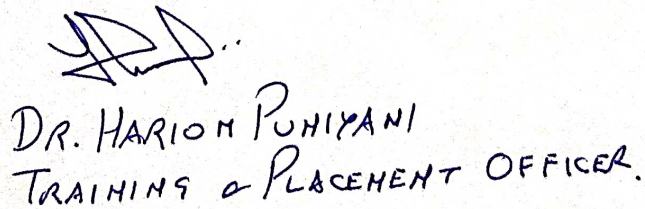 DR. HARIOM PUNIYANI
TRAINING & PLACEMENT OFFICER.